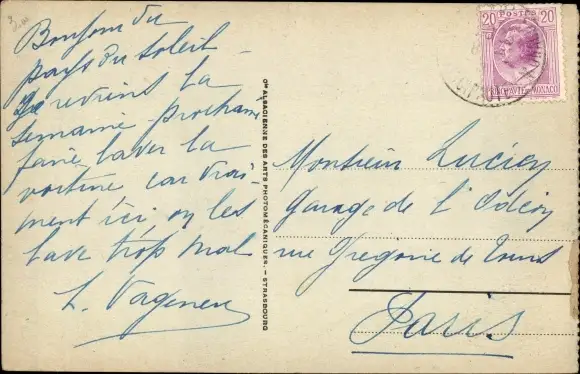 Bonjour du
pays du soleil
Je reviens la
semaine prochaine
faire laver la
voiture car vrai-
ment ici on les
lave trop mal
Cie ALSACIENNE DES ARTS PHOTOMÉCANIQUES — STRASBOURG
20 POSTES 20
MONACO
Monsieur Lucien
Garage de l'Odéon
rue Gregoire de Tours
Paris